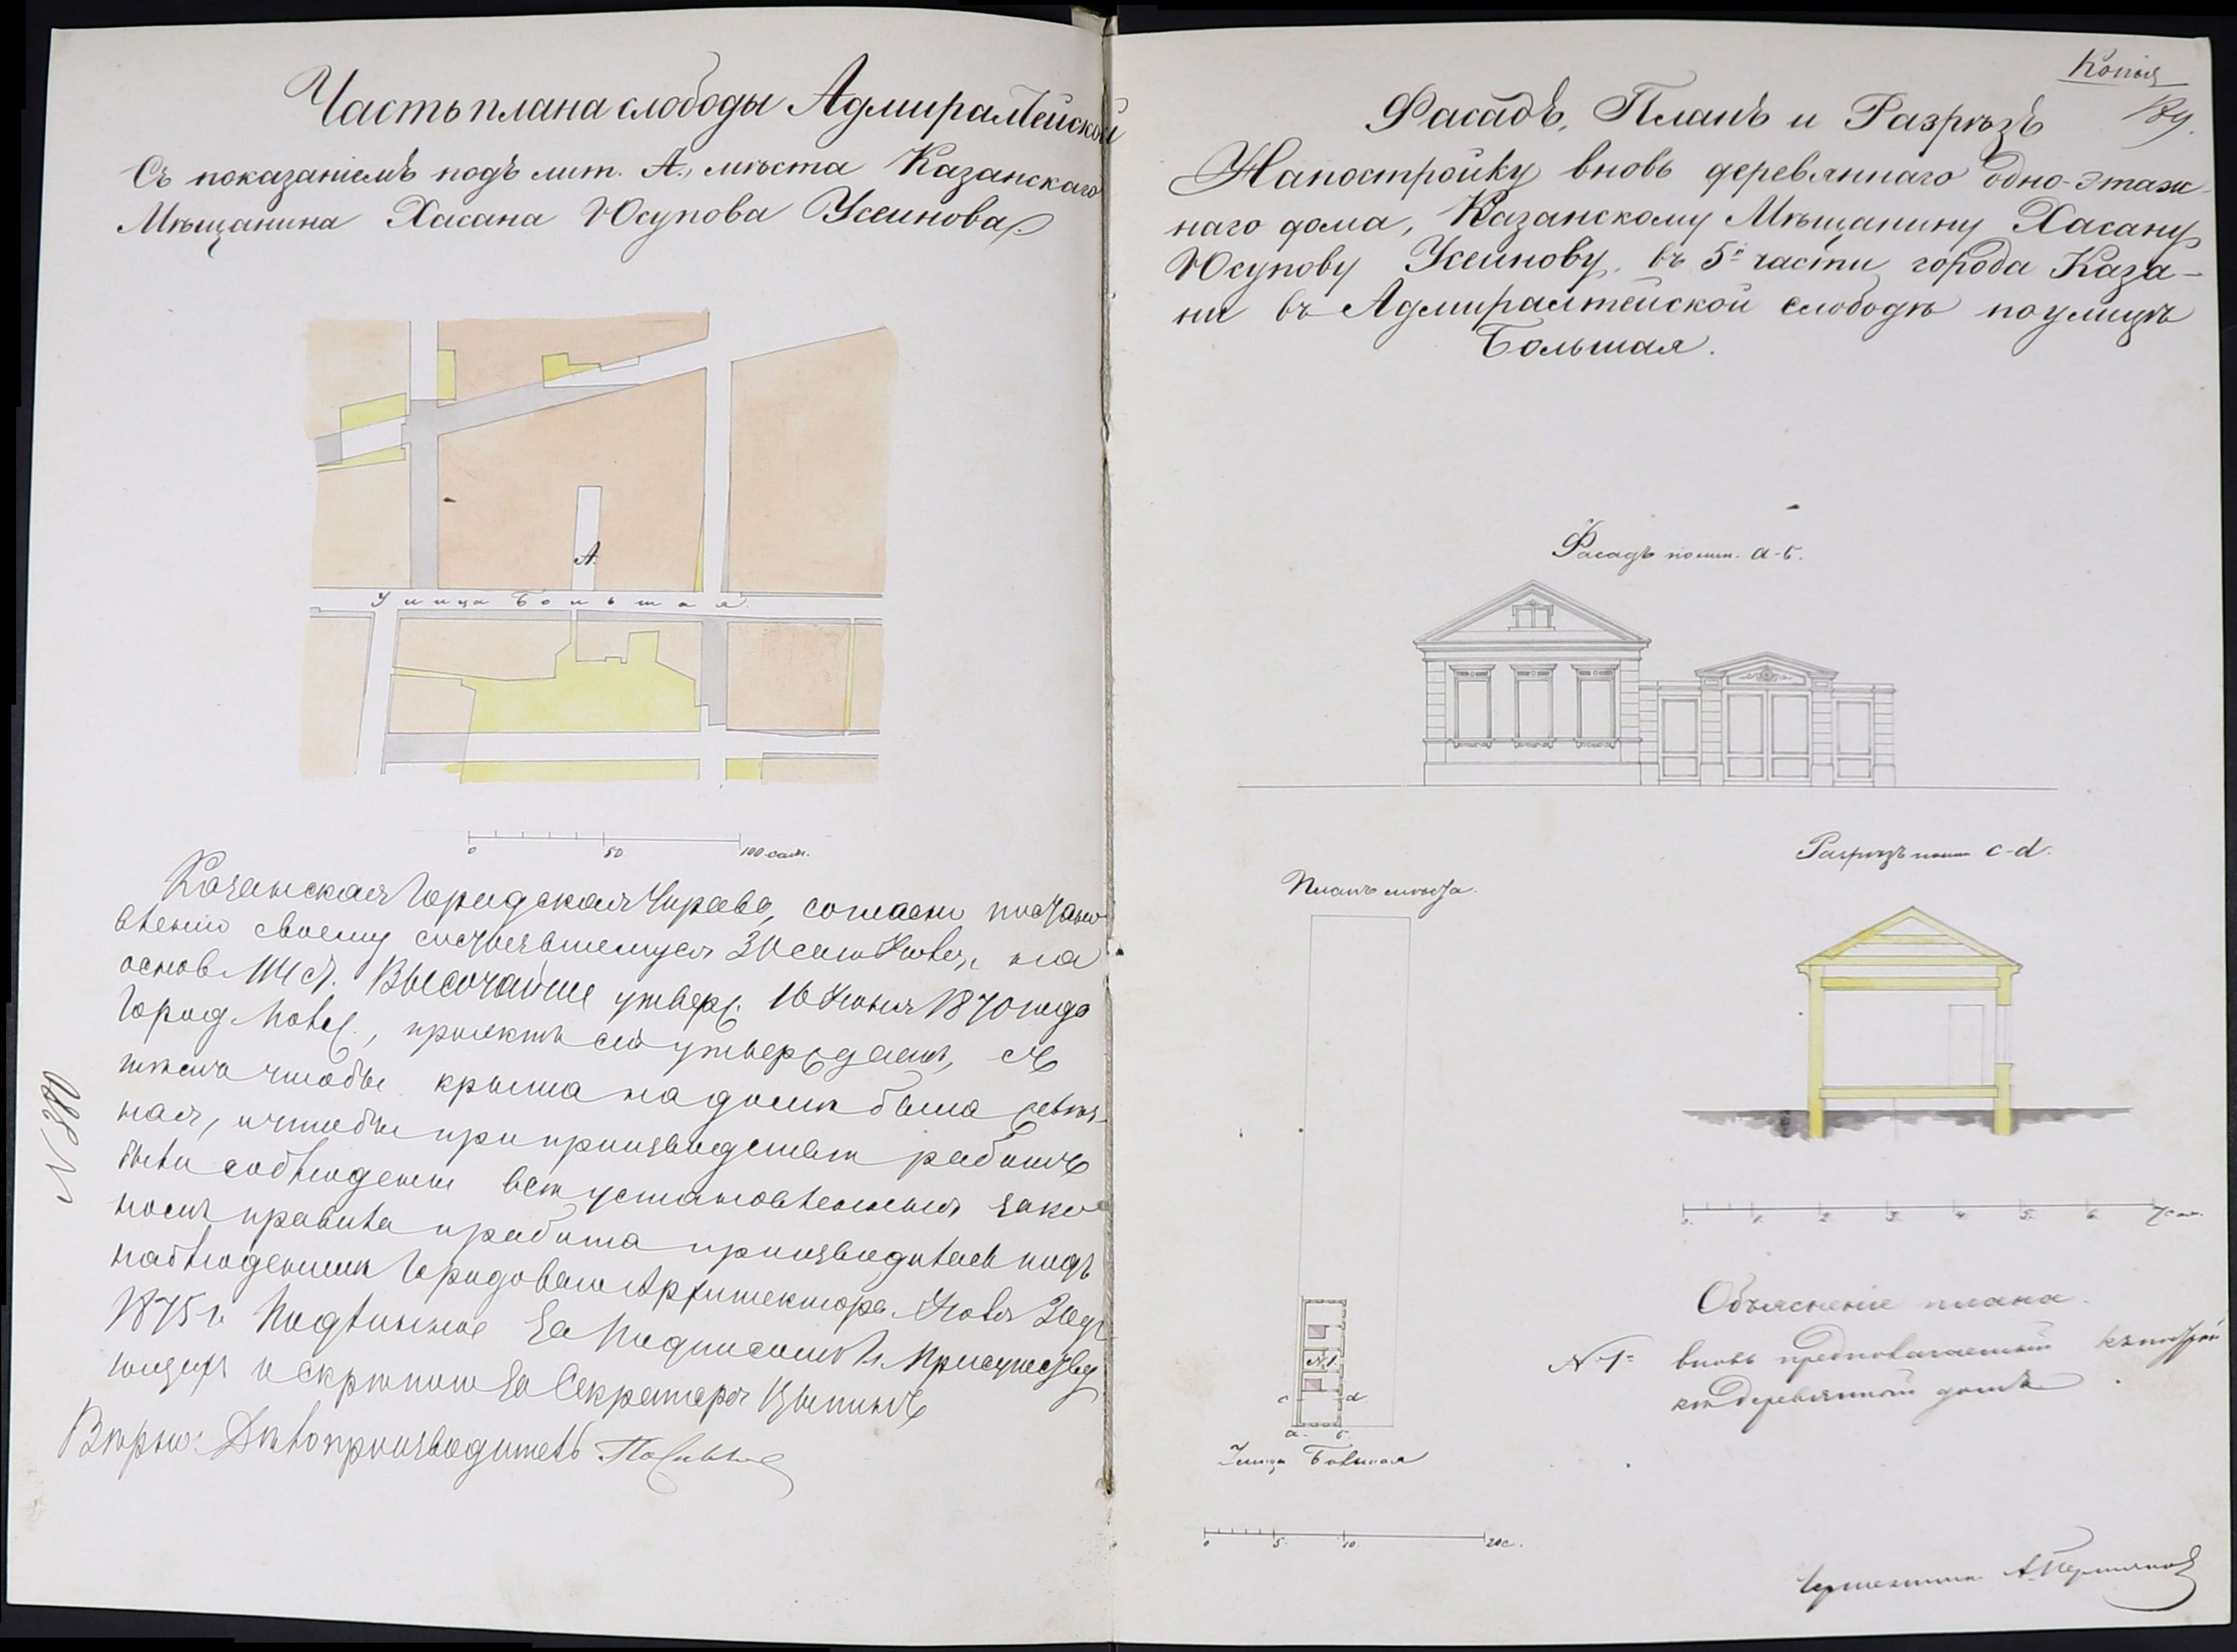 Часть плана слободы Адмиралтейской
Съ показаніемъ подъ лит. А., мѣста Казанскаго
Мѣщанина Хасана Юсупова Усеинова.
А.
Улица Большая.
0 50 100 саж.
Казанская Городская Управа, согласно постано
вленію своему состоявшемуся 30 сего Іюля, на
основ. 114 ст. Высочайше утверж. 16 Іюня 1870 года
Город. Полож., проектъ сей утверждаетъ, съ
тѣмъ чтобы крыша на домѣ была желѣз-
ная, и чтобы при производствѣ работъ
были соблюдены всѣ установленныя зако
номъ правила и работа производилась подъ
наблюденіемъ Городоваго Архитектора. Іюля 30 дн
1875 г. Подлинное за подписомъ г. Присутству
ющихъ и скрѣпою за Секретаря
Вѣрно: Дѣлопроизводитель
N 380
Копія
189.
Фасадъ, Планъ и Разрѣзъ
На постройку вновь деревяннаго одно-этаж-
наго дома, Казанскому Мѣщанину Хасану
Юсупову Усеинову. въ 5й части города Каза-
ни въ Адмиралтейской слободѣ по улицѣ
Большая.
Фасадъ по лин. а-б.
Разрѣзъ по лин. c-d.
Планъ мѣста.
N.1.
c d
а. б.
Улица Большая
0 5 10 20 с.
0. 1. 2. 3. 4. 5. 6. 7 саж.
Объясненіе плана.
N 1й вновь предполагаемый къ построй
кѣ деревянный домъ.
Чертежникъ А. Пермяковъ